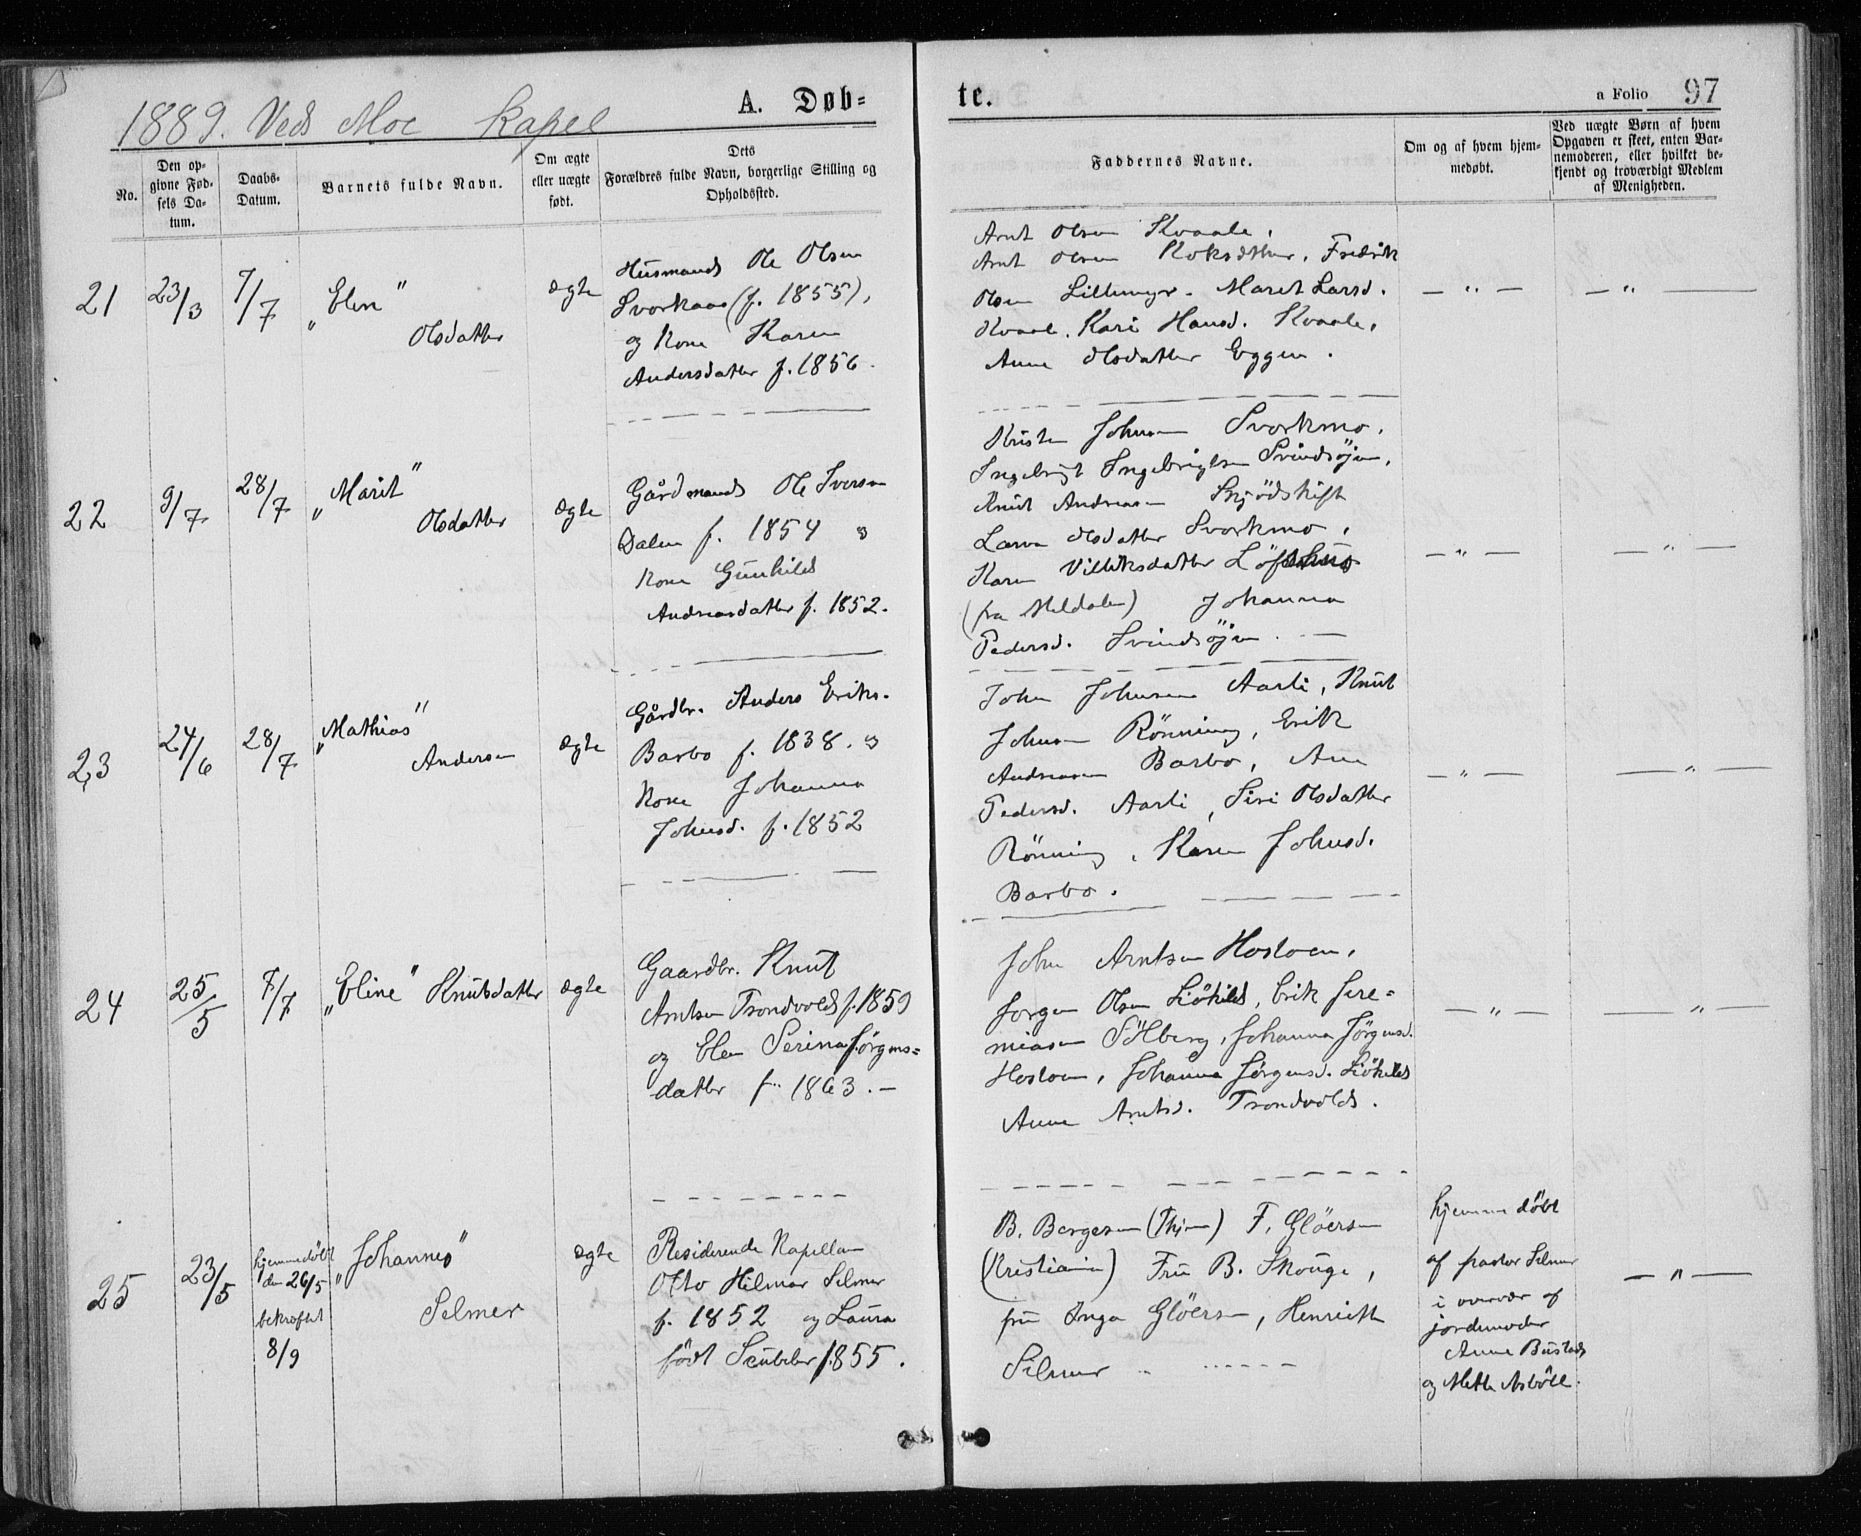 1889. Veds Moe Kapel
A. Døb-
te.
a Folio 97
No.
Den op-
givne Fød-
sels Da-
tum.
Daabs-
Datum.
Barnets fulde Navn.
Om ægte
eller uægte
født.
Dets
Forældres fulde Navn, borgerlige Stilling og
Opholdssted.
Faddernes Navne.
Om og af hvem hjem-
medøbt.
Ved uægte Børn af hvem
Opgaven er skeet, enten Bar-
nemoderen, eller hvilket be-
kjendt og troværdigt Medlem
af Menigheden.
21
23/3
7/7
"Elen"
Olsdatter
ægte
Husmands Ole Olsen
Svorkaas (f. 1855),
og Kone Karen
Andersdatter f. 1856.
Arnt Olsen Kvaale,
Arnt Olsen Fredrik
Olsen Lillemyr. Maret Larsd.
Kvaal. Kari Hansd. Kvaale,
Anne Olsdatter Eggen.
— " —
— " —
22
9/7
28/7
"Marit"
Olsdatter
ægte
Gårdmands Ole Iversen
Dalen f. 1854 og
Kone Gunhild
Andreasdatter f. 1852.
Kristen Johnsen Svorkmo,
Ingebrigt Ingebrigtsen Svindsøjen,
Knut Andreasen Skjødskift
Lava Olsdatter Svorkmo,
Karen
(fra Meldalen) Johanna
Pedersd. Svindsøjen. —
— " —
— " —
23
24/6
28/7
"Mathias"
Andersen
ægte
Gårdbr. Anders Eriks.
Barbo f. 1838. og
Kone Johanna
Johnsd. f. 1852
John Johnsen Aarli, Knut
Johnsen Rönning, Erik
Andreasen Barbo, Ane
Pedersd. Aarli, Siri Olsdatter
Rönning, Karen Johnsd.
Barbo.
— " —
— " —
24
25/5
7/7
"Eline" Knutsdatter
ægte
Gaardbr. Knut
Arntsen Trondvold f. 1859
og Elen Serina Jørgens=
datter f. 1863. —
John Arntsen Hosloen,
Jørgen Olsen Liøkild, Erik Jere=
miasen Sölberg, Johanna Jørgensd.
Hosloen, Johanna Jørgensd. Liøkild
Anne Arntsd. Trondvold.
— " —
— " —
25
23/5
hjemmedöbt
den 26/5
bekræftet
8/9
"Johannes"
Selmer
ægte
Residerende Kapellan
Otto Hilmar Selmer
f. 1852 og Laura
født f. 1855.
B. Borgesen (Thjm) F. Glöersen
(Kristiania) Fru B. Skouge,
fru Inga Glöersen, Henriette
Selmer
hjemmedöbt
af pastor Selmer
i overvær af
jordemoder
Anne Bustad
og Mette Asböll.
— " —